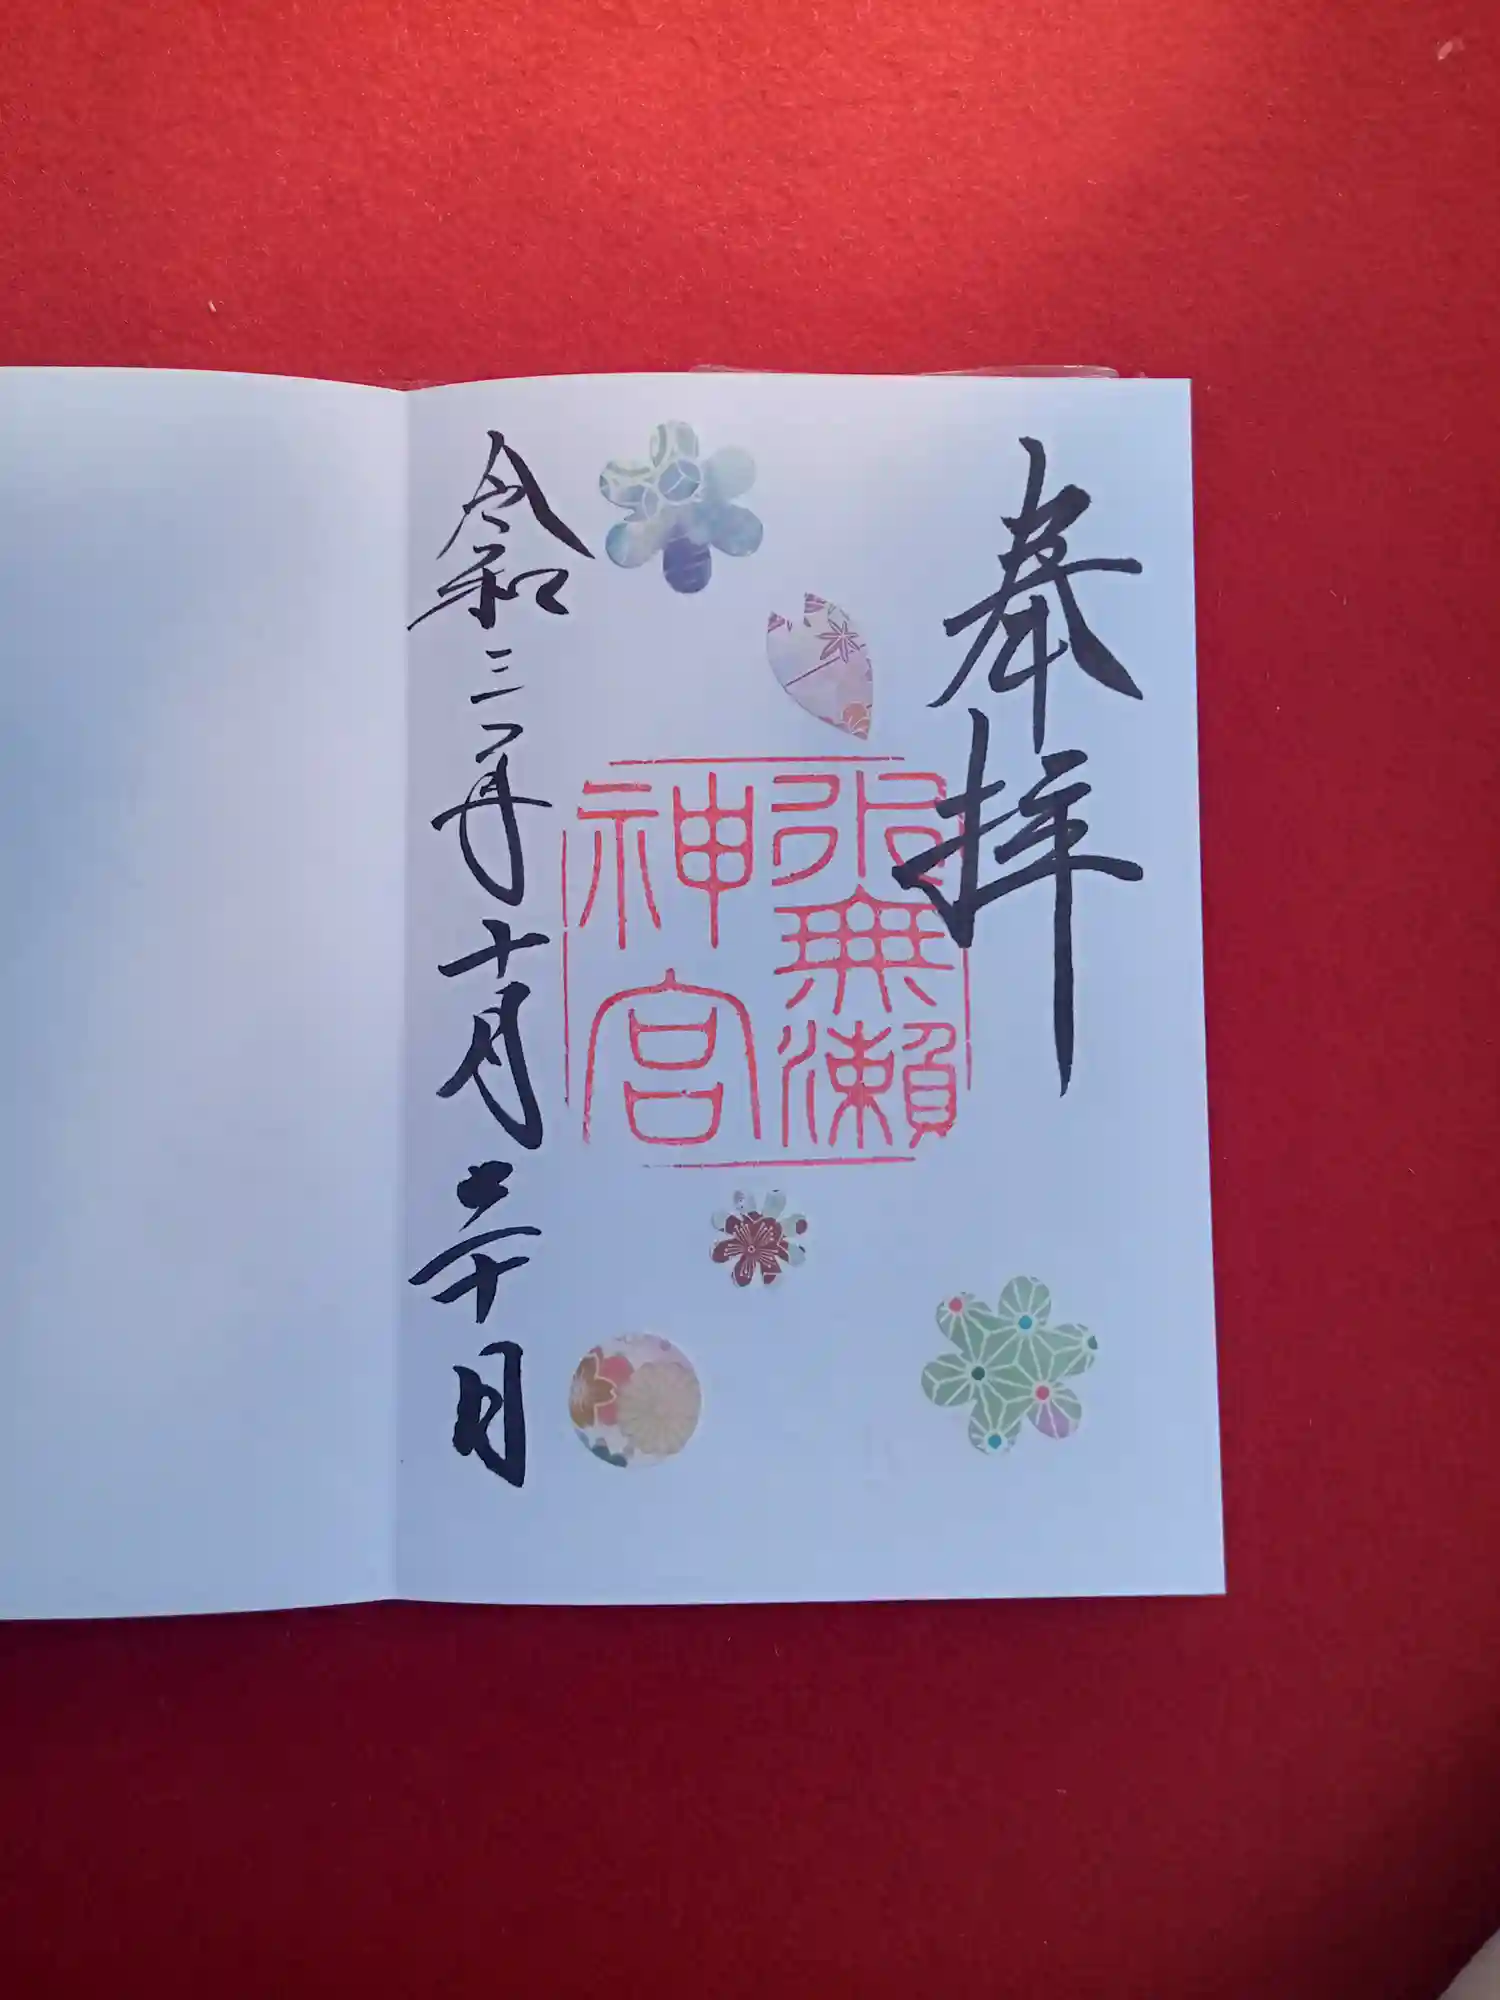 奉拝
水無瀨
神宮
令和三年十月二十日